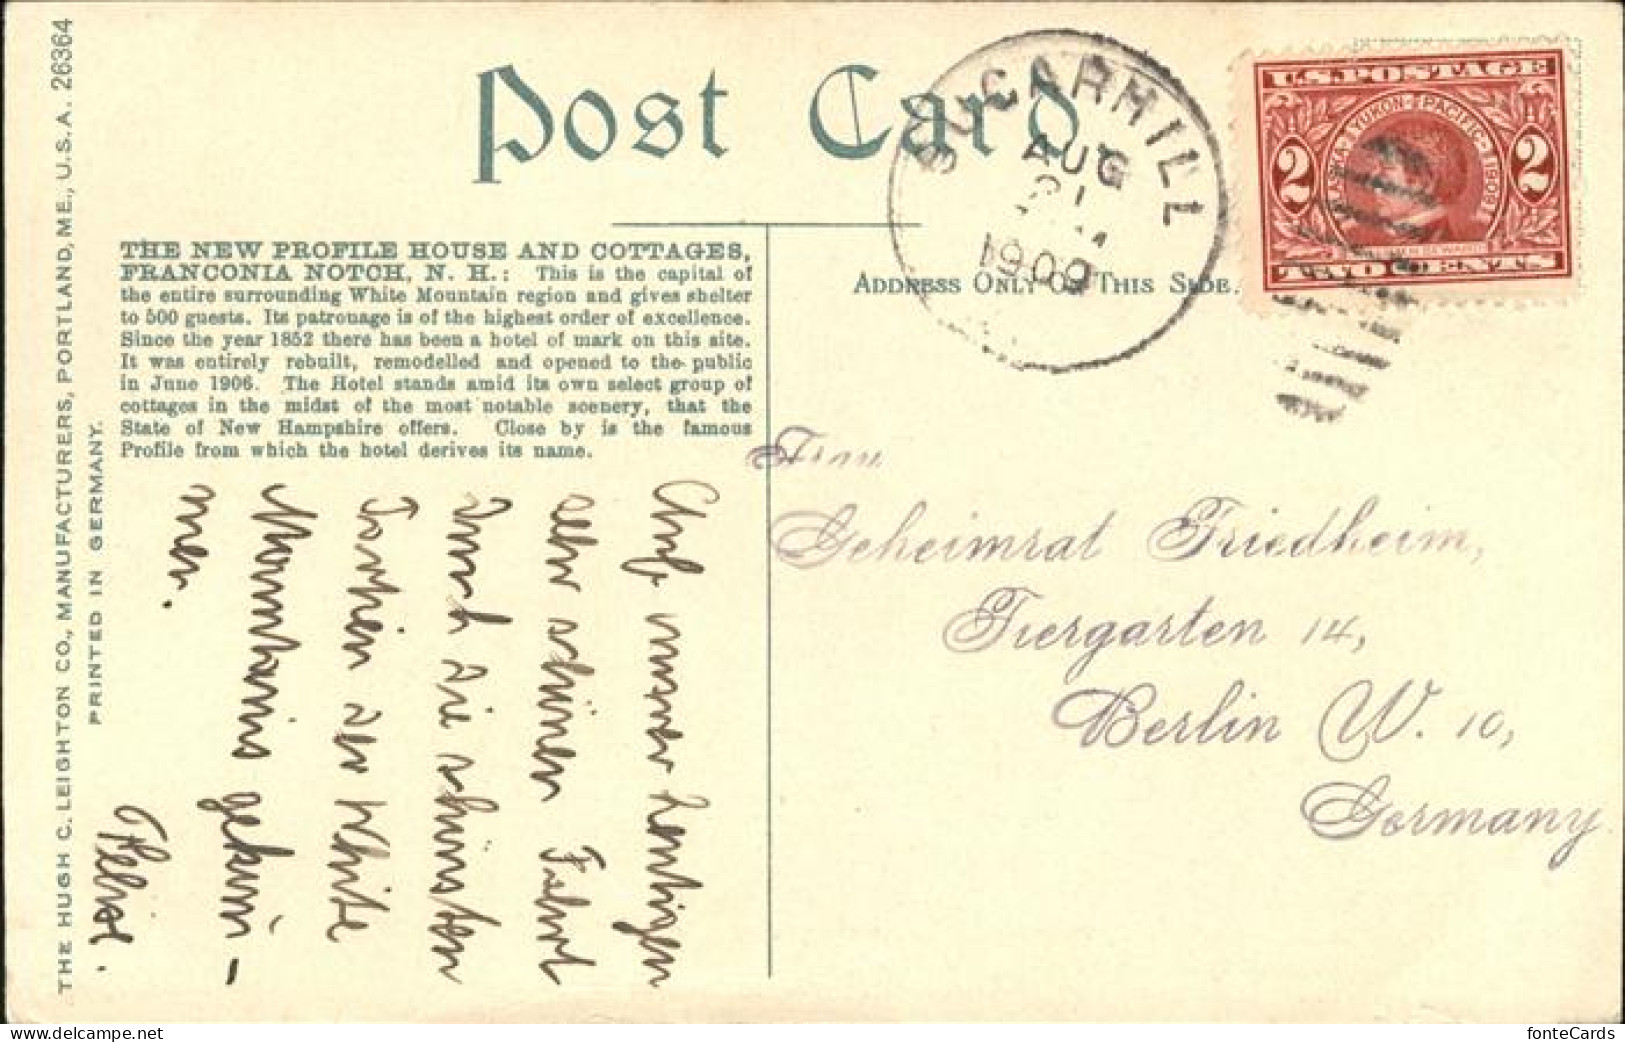 THE HUGH C. LEIGHTON CO., MANUFACTURERS, PORTLAND, ME., U.S.A. 26364
PRINTED IN GERMANY.
Post Card.
SUGARHILL
AUG
21
1909
U.S. POSTAGE
ALASKA-YUKON-PACIFIC-1909
2 2
TWO CENTS
THE NEW PROFILE HOUSE AND COTTAGES,
FRANCONIA NOTCH, N. H.: This is the capital of
the entire surrounding White Mountain region and gives shelter
to 500 guests. Its patronage is of the highest order of excellence.
Since the year 1852 there has been a hotel of mark on this site.
It was entirely rebuilt, remodelled and opened to the public
in June 1906. The Hotel stands amid its own select group of
cottages in the midst of the most notable scenery, that the
State of New Hampshire offers. Close by is the famous
Profile from which the hotel derives its name.
ADDRESS ONLY ON THIS SIDE.
Frau
Geheimrat Friedheim,
Tiergarten 14,
Berlin W. 10,
Germany.
Auf unserer heutigen
sehr schönen Fahrt
durch die schönsten
Partien der White
Mountains